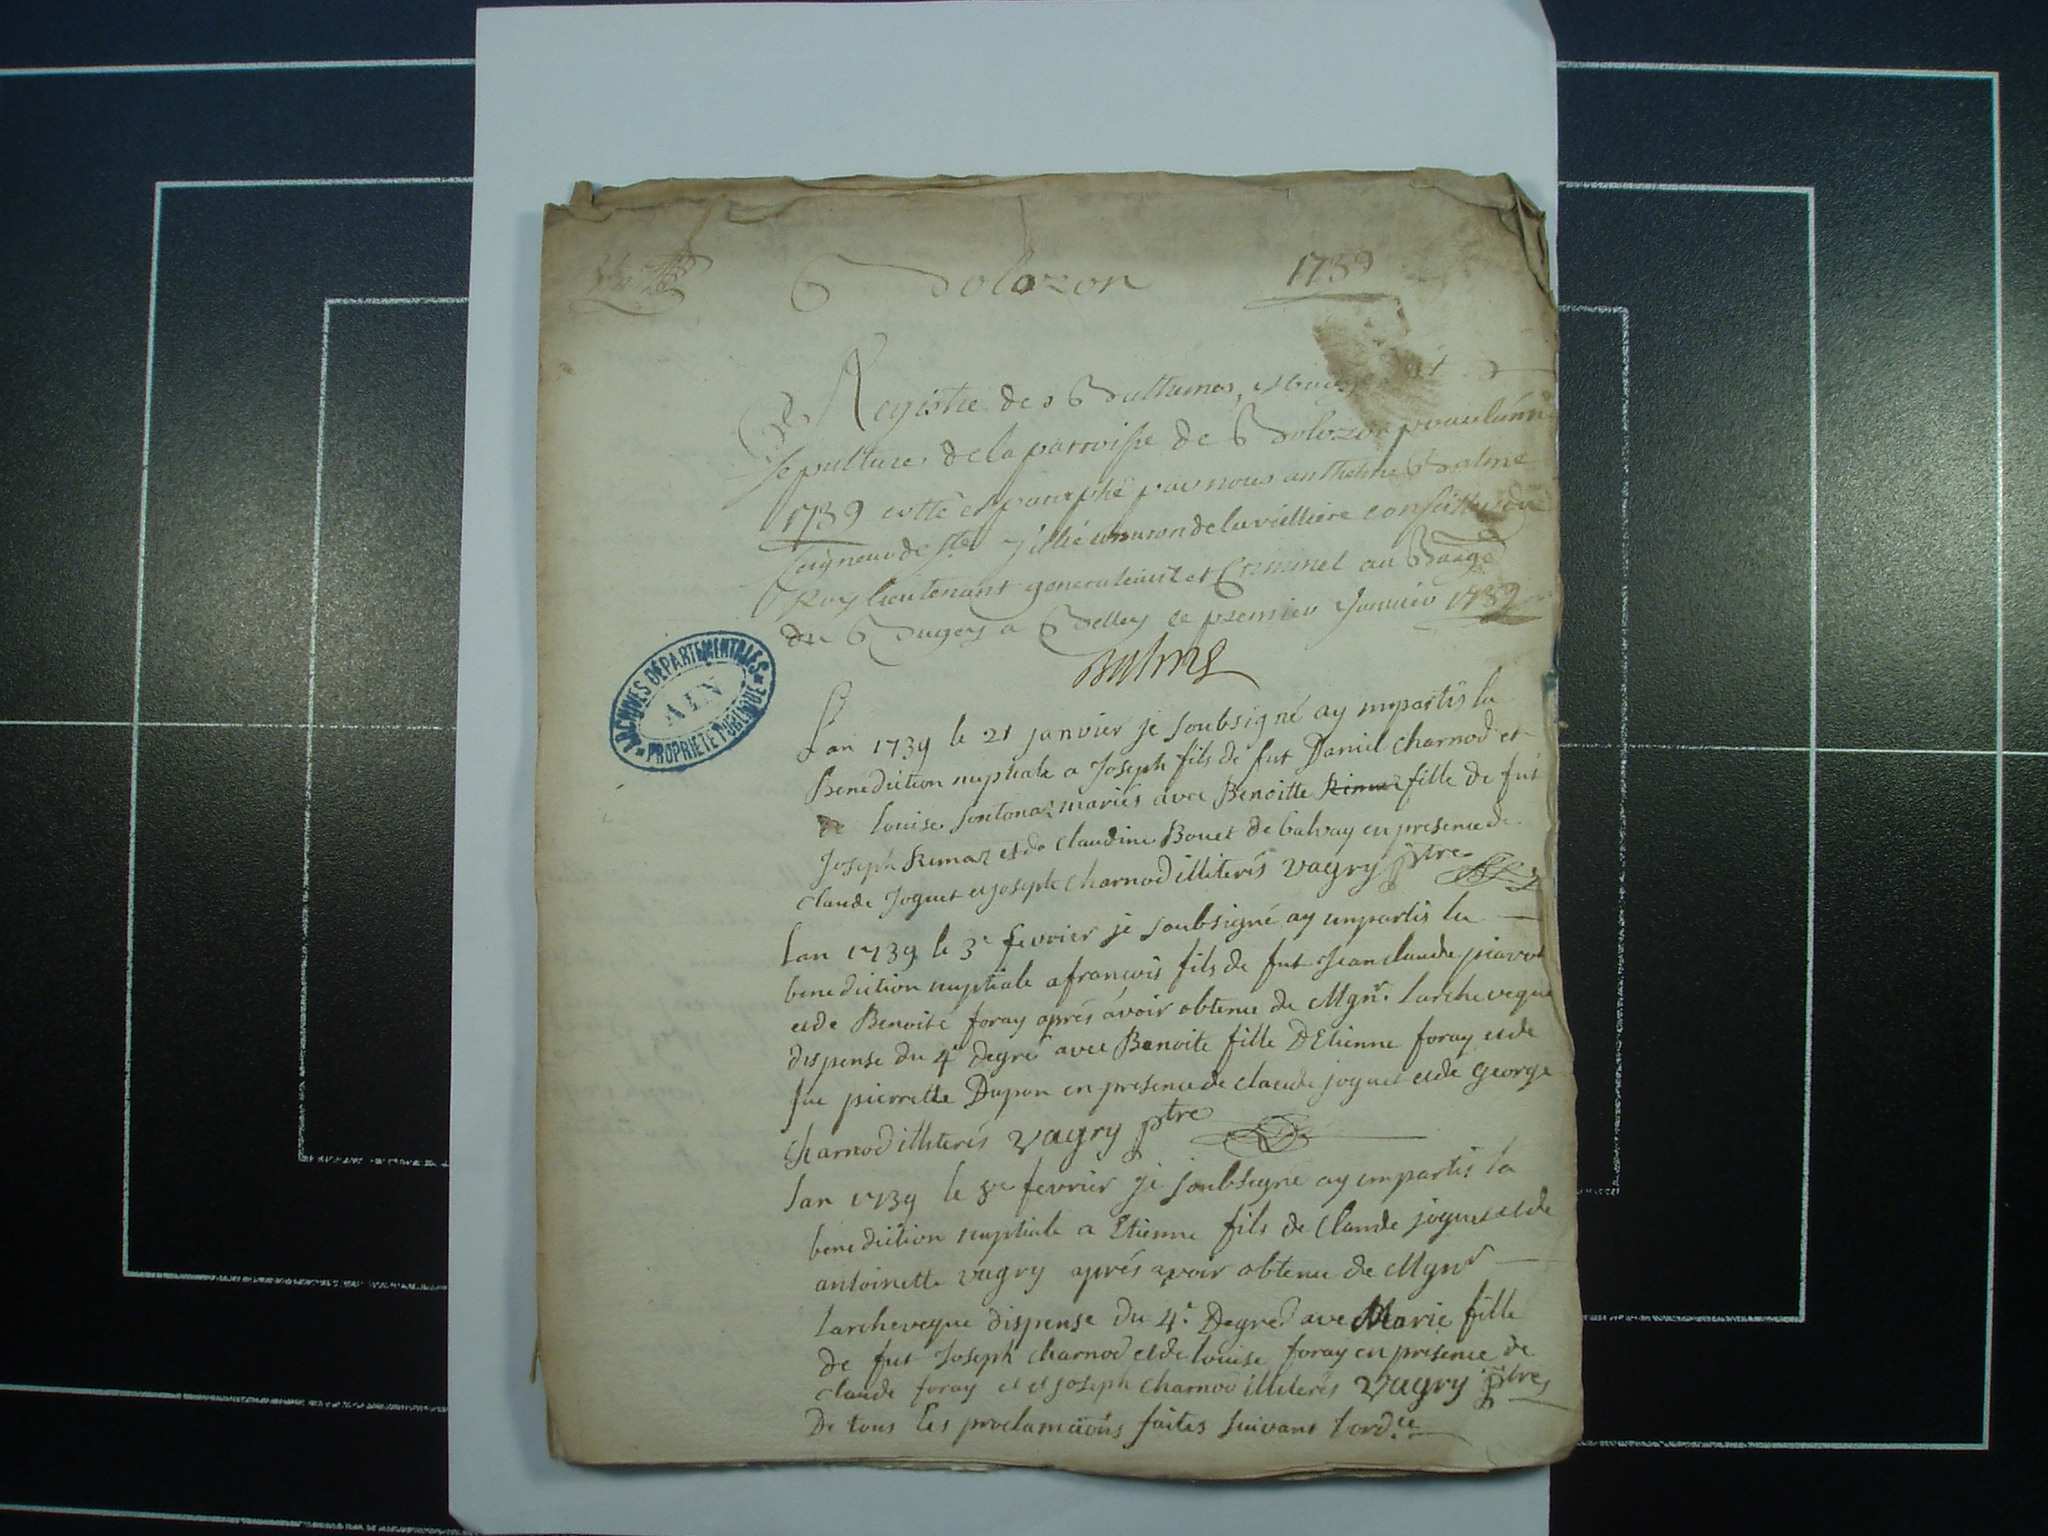 Bolozon 1739
Registre des Battemes, mariages et
sepultures de la parroisse de Bolozon pour l'année
1739 cotté et paraphé par nous Anthelme Balme
seigneur de Ste Julie baron de la vellière conseiller du
Roy lieutenant general civil et Criminel au Baage
du Bugey a Belley le premier Janvier 1739
Balme
ARCHIVES DÉPARTEMENTALES
AIN
PROPRIÉTÉ PUBLIQUE
Lan 1739 le 21 janvier je soubsigné ay impartis la
Benediction nuptiale a Joseph fils de fut Daniel charnod et
de louise fontonaz mariés avec Benoitte Rimaz fille de fut
Joseph Rimaz et de claudine Bouet de balvay en presence de
claude Joguet et joseph charnod illiterés vagry ptre
lan 1739 le 3e fevrier je soubsigné ay impartis la
benediction nuptiale a francois fils de fut Jean claude piavot
et de Benoite foray aprés avoir obtenu de Mgnr. larcheveque
dispense du 4e degré avec Benoite fille D'Etienne foray et de
fue pierrette Dupon en presence de claude joguet et de George
charnod illiterés vagry ptre
lan 1739 le 8e fevrier je soubsigné ay impartis la
benediction nuptiale a Etienne fils de claude joguet et de
antoinette vagry aprés avoir obtenu de Mgnr
larcheveque dispense du 4e Degré avec Marie fille
de fut Joseph charnod et de louise foray en presence de
claude foray et et joseph charnod illiterés vagry ptre
De tous les proclamaõns faites suivant lordce